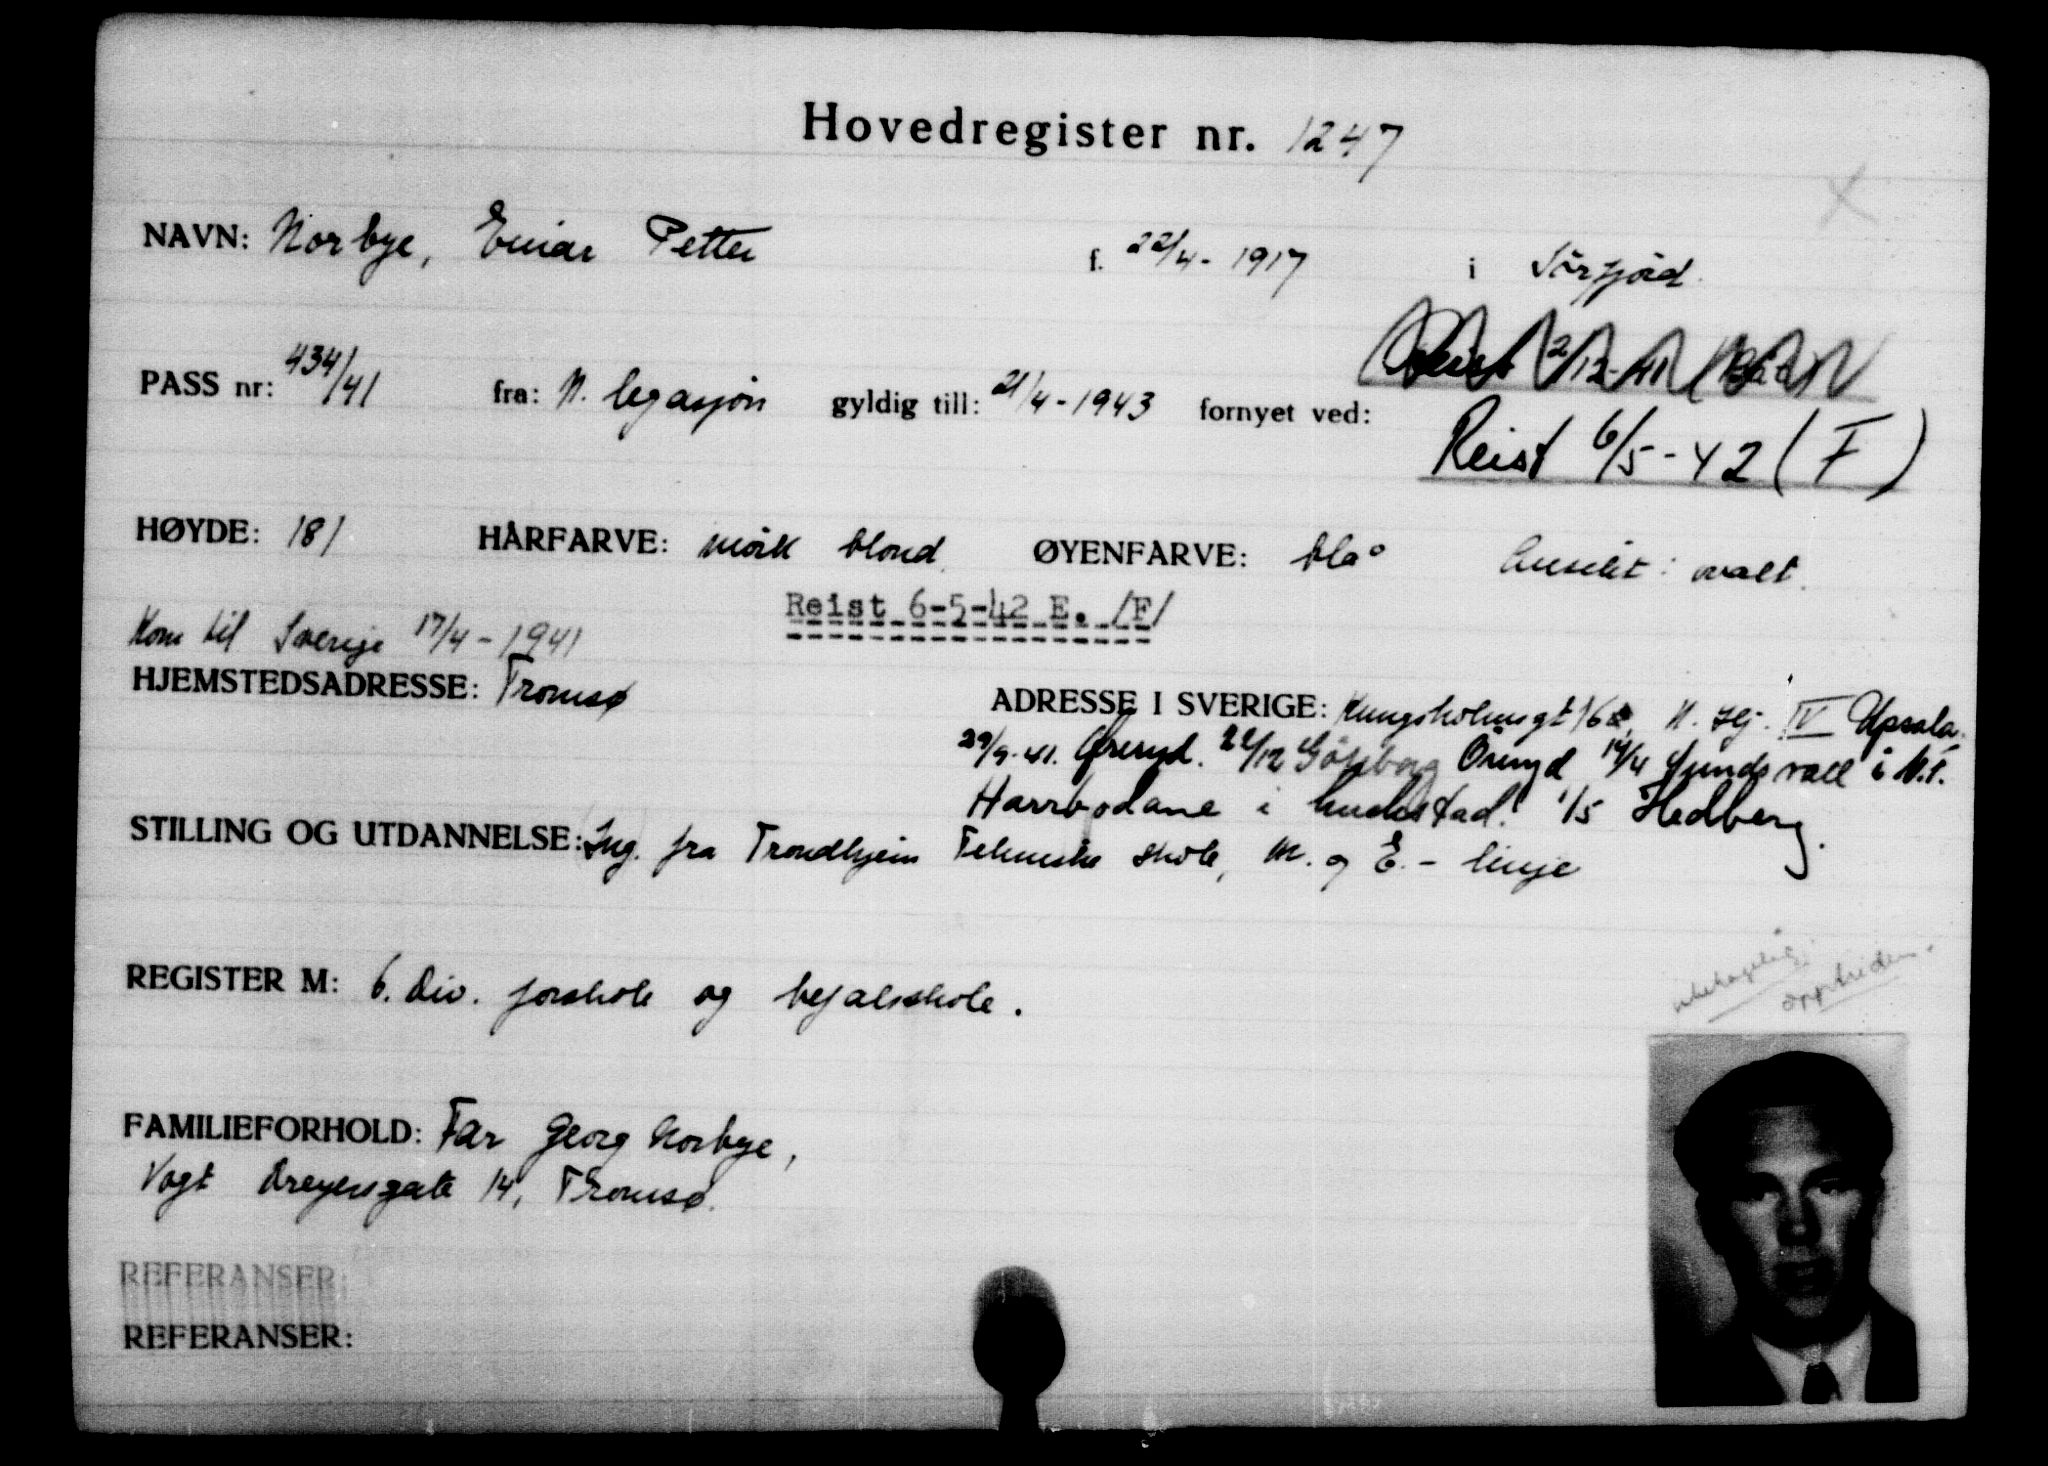 Hovedregister nr. 1247
NAVN: Norbye, Einar Petter f. 22/4 - 1917 i Sörfjord.
Reist 2/12-41
PASS nr: 434/41 fra: N. legasjon gyldig till: 21/4 - 1943 fornyet ved:
Reist 6/5-42 (F)
HØYDE: 181 HÅRFARVE: mörk blond. ØYENFARVE: blå Ansikt: ovalt.
Reist 6-5-42 E. /F/
Kom til Sverige 17/4 - 1941
HJEMSTEDSADRESSE: Tromsø
ADRESSE I SVERIGE: Kungsholmsgt 16 N. Hj. IV Upsala.
29/9-41. Öreryd. 22/12 Göteborg Öreryd 14/4 Sundsvall i
Harrbodane i 1/5 Hedberg.
STILLING OG UTDANNELSE: Ing. fra Trondhjem Tekniske skole, M. og E. - linje
REGISTER M: 6. Div. forskole og befalsskole.
opptreden.
FAMILIEFORHOLD: Far Georg Norbye,
Vogt Dreyersgate 14, Tromsø.
REFERANSER:
REFERANSER: